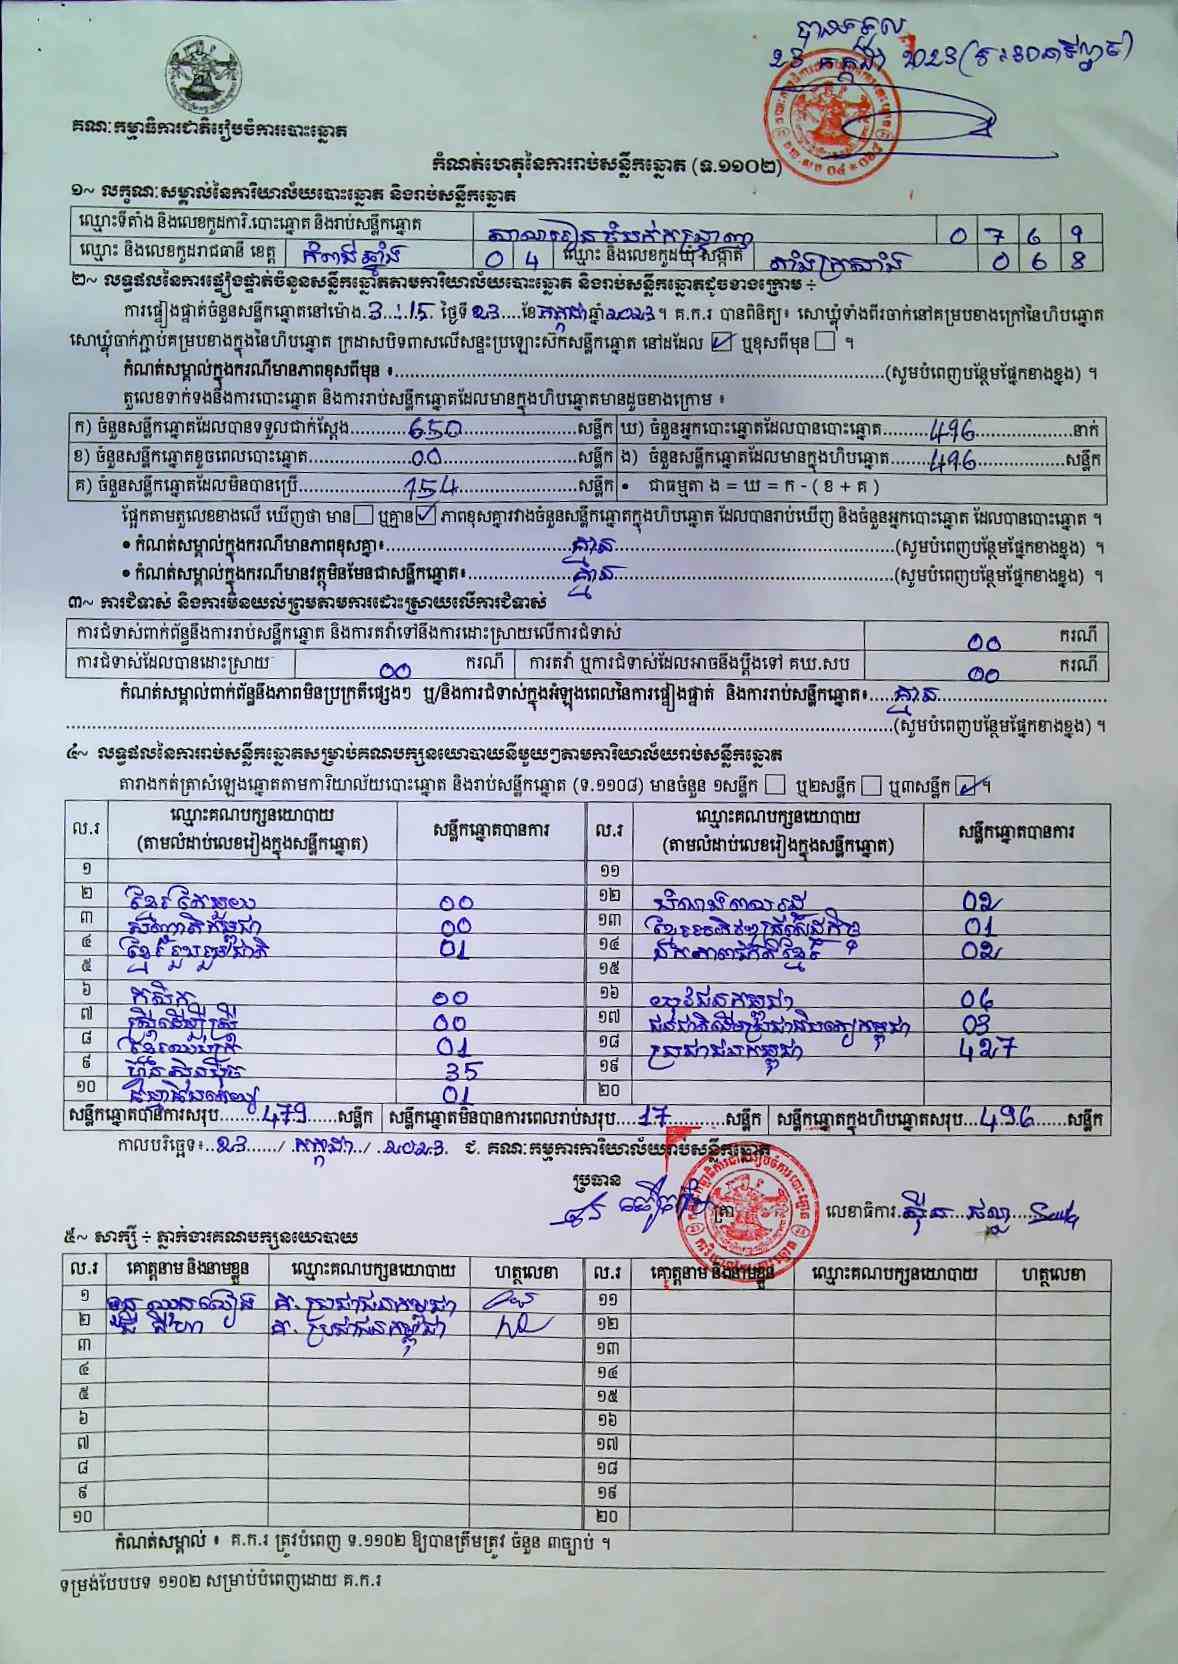 បានទទួល
23 កក្កដា 2023
គណៈកម្មាធិការជាតិរៀបចំការបោះឆ្នោត
កំណត់ហេតុនៃការរាប់សន្លឹកឆ្នោត (ទ.១១០២)
១~ លក្ខណៈសម្គាល់នៃការិយាល័យបោះឆ្នោត និងរាប់សន្លឹកឆ្នោត
ឈ្មោះទីតាំង និងលេខកូដការិ.បោះឆ្នោត និងរាប់សន្លឹកឆ្នោត សាលារៀនចំបក់កង្រ្ទាញ 0 7 6 9
ឈ្មោះ និងលេខកូដរាជធានី ខេត្ត កំពង់ឆ្នាំង 0 4 ឈ្មោះ និងលេខកូដឃុំ សង្កាត់ តាំងក្រសាំង 0 6 8
២~ លទ្ធផលនៃការផ្ទៀងផ្ទាត់ចំនួនសន្លឹកឆ្នោតតាមការិយាល័យបោះឆ្នោត និងរាប់សន្លឹកឆ្នោតដូចខាងក្រោម ÷
ការផ្ទៀងផ្ទាត់ចំនួនសន្លឹកឆ្នោតនៅម៉ោង.3.:.15. ថ្ងៃទី23....ខែកក្កដាឆ្នាំ2023។ គ.ក.រ បានពិនិត្យ៖ សោឃ្លុំទាំងពីរចាក់នៅគម្របខាងក្រៅនៃហិបឆ្នោត
សោឃ្លុំចាក់ភ្ជាប់គម្របខាងក្នុងនៃហិបឆ្នោត ក្រដាសបិទពាសលើសន្ទះប្រឡោះស៊កសន្លឹកឆ្នោត នៅដដែល ☑ ឬខុសពីមុន ☐ ។
កំណត់សម្គាល់ក្នុងករណីមានភាពខុសពីមុន ៖....................(សូមបំពេញបន្ថែមផ្នែកខាងខ្នង) ។
តួលេខទាក់ទងនឹងការបោះឆ្នោត និងការរាប់សន្លឹកឆ្នោតដែលមានក្នុងហិបឆ្នោតមានដូចខាងក្រោម ៖
ក) ចំនួនសន្លឹកឆ្នោតដែលបានទទួលជាក់ស្តែង..........650..........សន្លឹក ឃ) ចំនួនអ្នកបោះឆ្នោតដែលបានបោះឆ្នោត........496..........នាក់
ខ) ចំនួនសន្លឹកឆ្នោតខូចពេលបោះឆ្នោត..........00..........សន្លឹក ង) ចំនួនសន្លឹកឆ្នោតដែលមានក្នុងហិបឆ្នោត.......496..........សន្លឹក
គ) ចំនួនសន្លឹកឆ្នោតដែលមិនបានប្រើ..........154..........សន្លឹក • ជាធម្មតា ង = ឃ = ក - ( ខ + គ )
ផ្អែកតាមតួលេខខាងលើ ឃើញថា មាន ☐ ឬគ្មាន ☑ ភាពខុសគ្នារវាងចំនួនសន្លឹកឆ្នោតក្នុងហិបឆ្នោត ដែលបានរាប់ឃើញ និងចំនួនអ្នកបោះឆ្នោត ដែលបានបោះឆ្នោត ។
• កំណត់សម្គាល់ក្នុងករណីមានភាពខុសគ្នា៖..........គ្មាន..........(សូមបំពេញបន្ថែមផ្នែកខាងខ្នង) ។
• កំណត់សម្គាល់ក្នុងករណីមានវត្ថុមិនមែនជាសន្លឹកឆ្នោត៖..........គ្មាន..........(សូមបំពេញបន្ថែមផ្នែកខាងខ្នង) ។
៣~ ការជំទាស់ និងការមិនយល់ព្រមតាមការដោះស្រាយលើការជំទាស់
ការជំទាស់ពាក់ព័ន្ធនឹងការរាប់សន្លឹកឆ្នោត និងការតវ៉ាទៅនឹងការដោះស្រាយលើការជំទាស់ 00 ករណី
ការជំទាស់ដែលបានដោះស្រាយ 00 ករណី ការតវ៉ា ឬការជំទាស់ដែលអាចនឹងប្តឹងទៅ គឃ.សប 00 ករណី
កំណត់សម្គាល់ពាក់ព័ន្ធនឹងភាពមិនប្រក្រតីផ្សេងៗ ឬ/និងការជំទាស់ក្នុងអំឡុងពេលនៃការផ្ទៀងផ្ទាត់ និងការរាប់សន្លឹកឆ្នោត៖.....គ្មាន..........
..........(សូមបំពេញបន្ថែមផ្នែកខាងខ្នង) ។
៤~ លទ្ធផលនៃការរាប់សន្លឹកឆ្នោតសម្រាប់គណបក្សនយោបាយនីមួយៗតាមការិយាល័យរាប់សន្លឹកឆ្នោត
តារាងកត់ត្រាសំឡេងឆ្នោតតាមការិយាល័យបោះឆ្នោត និងរាប់សន្លឹកឆ្នោត (ទ.១១០៨) មានចំនួន ១សន្លឹក ☐ ឬ២សន្លឹក ☐ ឬ៣សន្លឹក ☑ ។
ល.រ ឈ្មោះគណបក្សនយោបាយ (តាមលំដាប់លេខរៀងក្នុងសន្លឹកឆ្នោត) សន្លឹកឆ្នោតបានការ ល.រ ឈ្មោះគណបក្សនយោបាយ (តាមលំដាប់លេខរៀងក្នុងសន្លឹកឆ្នោត) សន្លឹកឆ្នោតបានការ
១ ១១
២ ខ្មែរតែមួយ 00 ១២ សំបុកឃ្មុំ 02
៣ សញ្ជាតិកម្ពុជា 00 ១៣ ខ្មែរអភិវឌ្ឍន៍សេដ្ឋកិច្ច 01
៤ ខ្មែររួបរួមជាតិ 01 ១៤ ឯកភាពជាតិខ្មែរ 02
៥ ១៥
៦ កសិករ 00 ១៦ យុវជនកម្ពុជា 06
៧ ស្ត្រីដើម្បីស្ត្រី 00 ១៧ ជនជាតិដើមប្រជាធិបតេយ្យកម្ពុជា 03
៨ ខ្មែរឈប់ក្រ 01 ១៨ ប្រជាជនកម្ពុជា 427
៩ ហ៊្វុនស៊ិនប៉ិច 35 ១៩
១០ ធម្មាធិបតេយ្យ 01 ២០
សន្លឹកឆ្នោតបានការសរុប......479......សន្លឹក សន្លឹកឆ្នោតមិនបានការពេលរាប់សរុប....17......សន្លឹក សន្លឹកឆ្នោតក្នុងហិបឆ្នោតសរុប...496......សន្លឹក
កាលបរិច្ឆេទ៖..23....../..កក្កដា../..2023. ជ. គណៈកម្មការការិយាល័យរាប់សន្លឹកឆ្នោត
ប្រធាន
ត្រា លេខាធិការ
៥~ សាក្សី ÷ ភ្នាក់ងារគណបក្សនយោបាយ
ល.រ គោត្តនាម និងនាមខ្លួន ឈ្មោះគណបក្សនយោបាយ ហត្ថលេខា ល.រ គោត្តនាម និងនាមខ្លួន ឈ្មោះគណបក្សនយោបាយ ហត្ថលេខា
១ គ. ប្រជាជនកម្ពុជា ១១
២ គ. ប្រជាជនកម្ពុជា ១២
៣ ១៣
៤ ១៤
៥ ១៥
៦ ១៦
៧ ១៧
៨ ១៨
៩ ១៩
១០ ២០
កំណត់សម្គាល់ ៖ គ.ក.រ ត្រូវបំពេញ ទ.១១០២ ឱ្យបានត្រឹមត្រូវ ចំនួន ៣ច្បាប់ ។
ទម្រង់បែបបទ ១១០២ សម្រាប់បំពេញដោយ គ.ក.រ